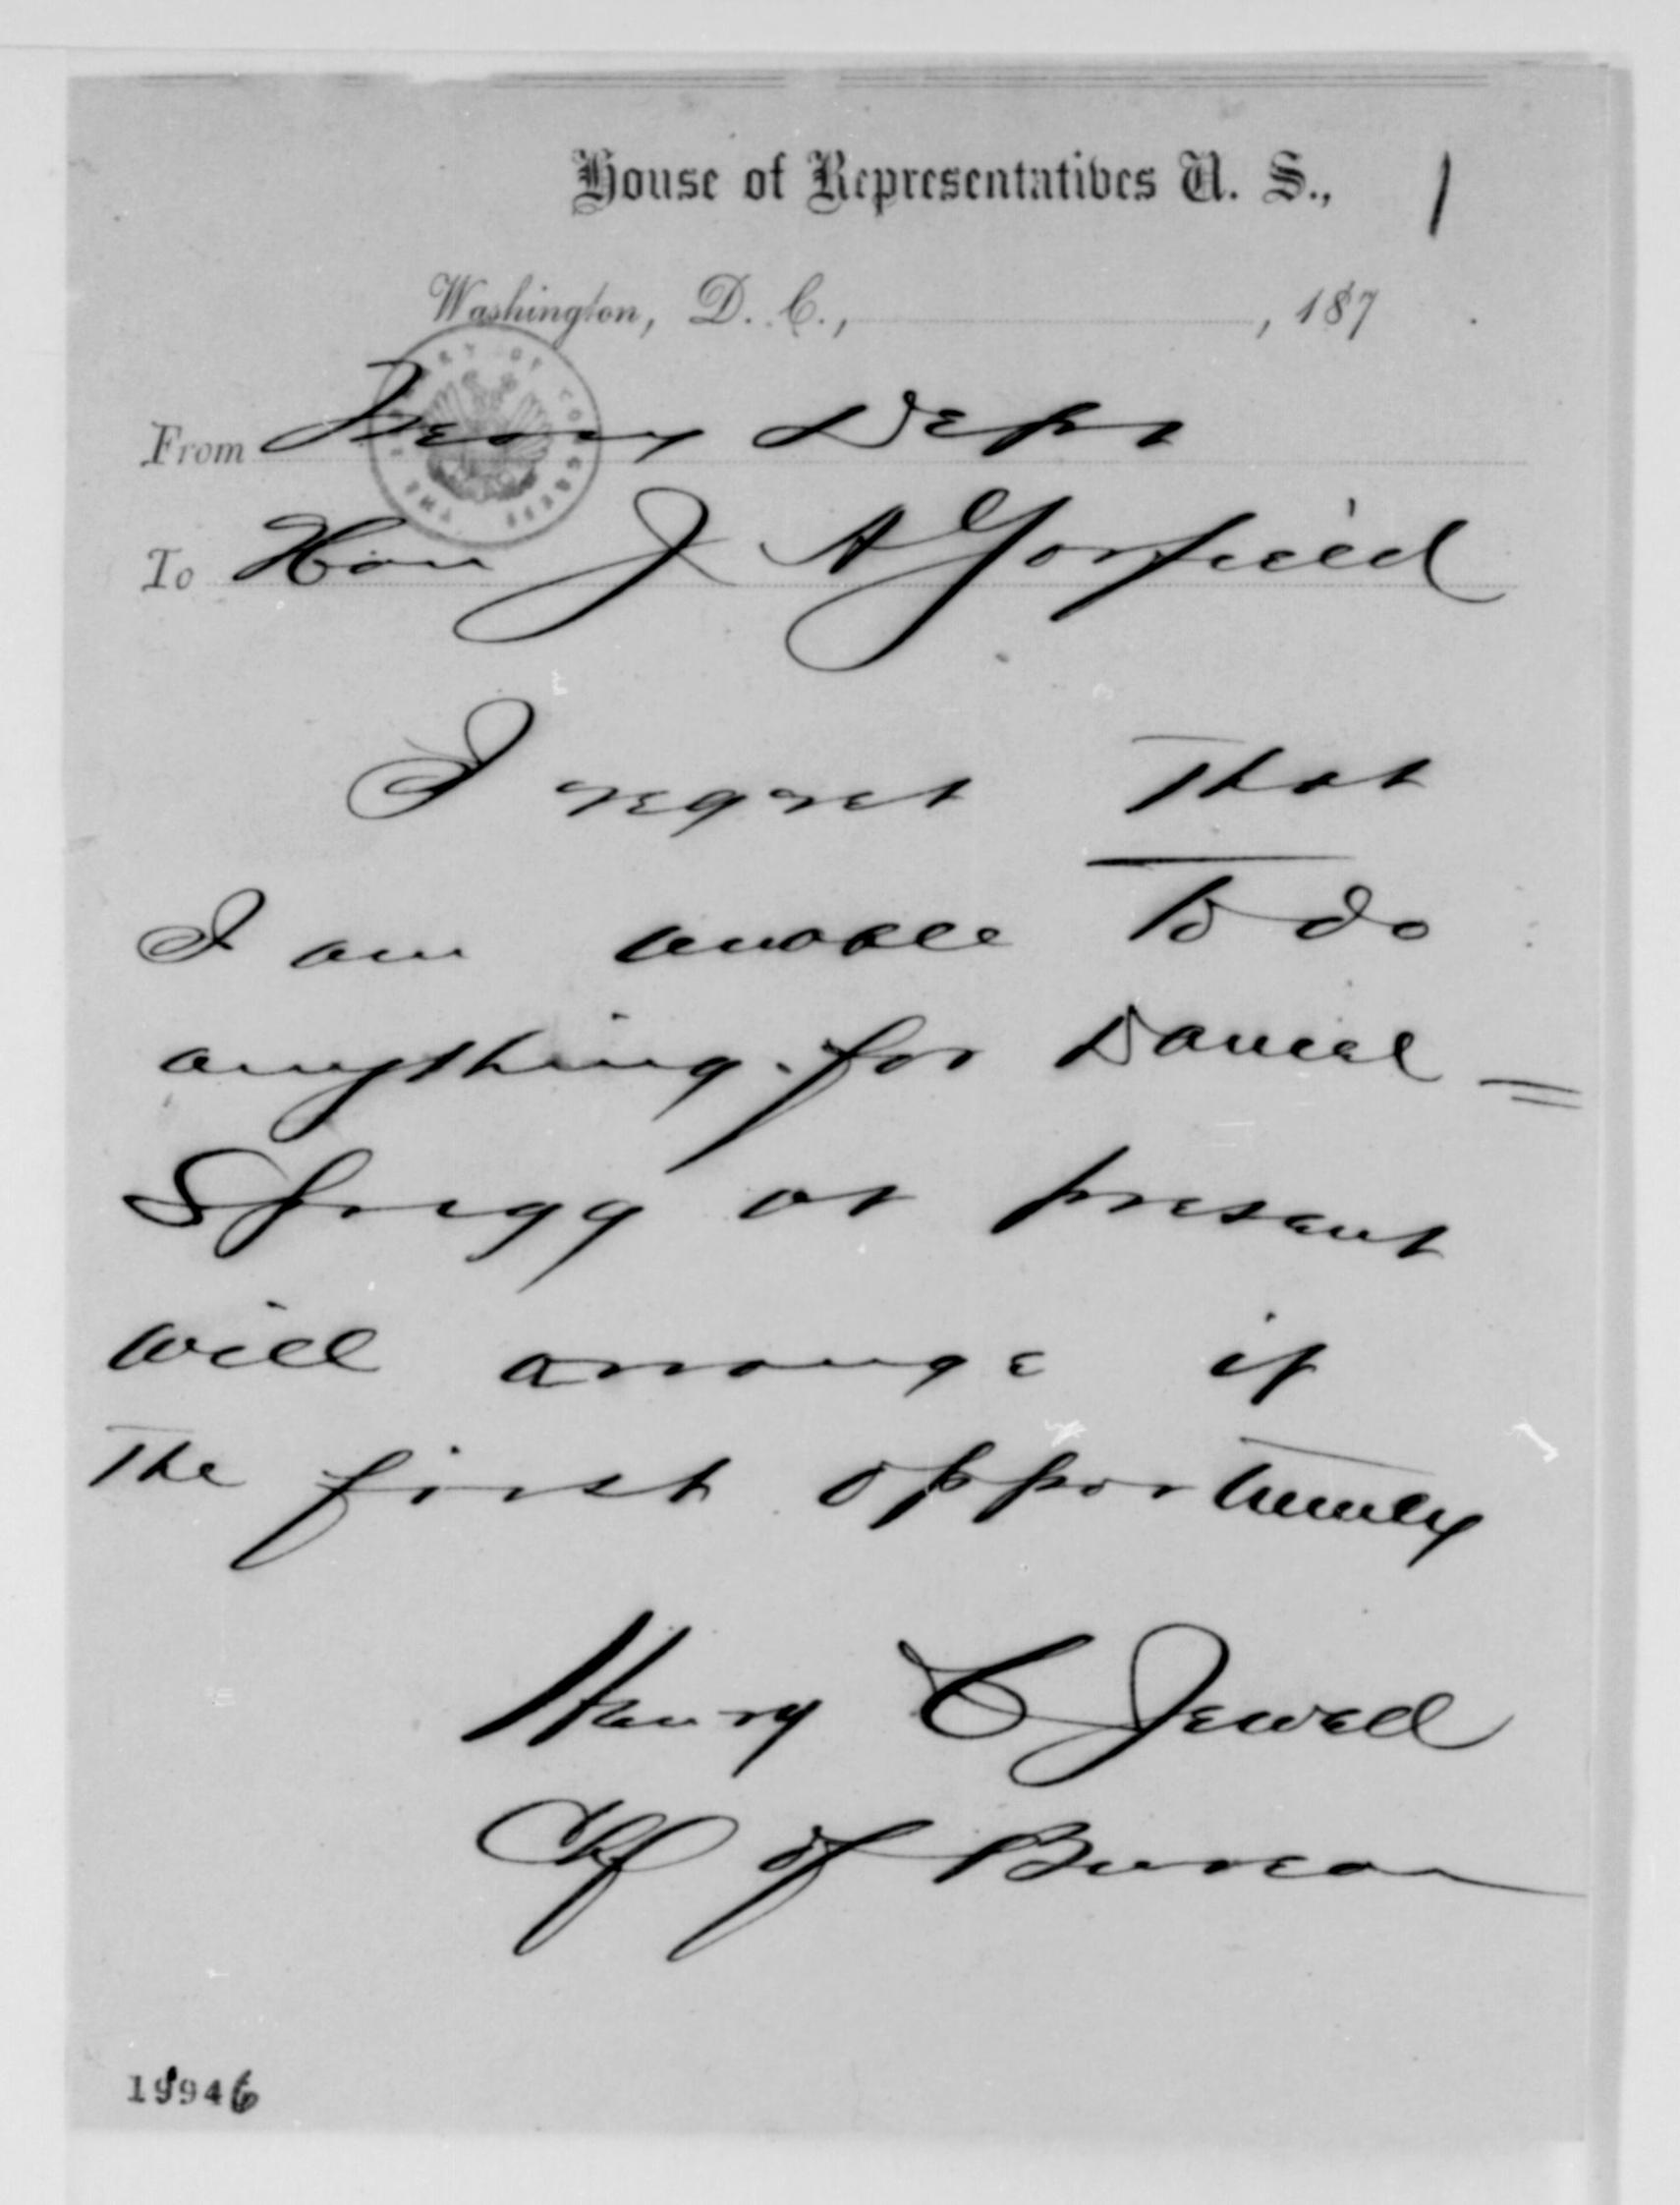 House of Representatives U. S.,
Washington, D. C., , 187
From Treasy Dept
To Hon J A Garfield
I regret that
I am unable to do
anything for Daniel =
Sprigg at present
will arrange it
the first opportunity
Henry C Jewell
Chf of Bureau